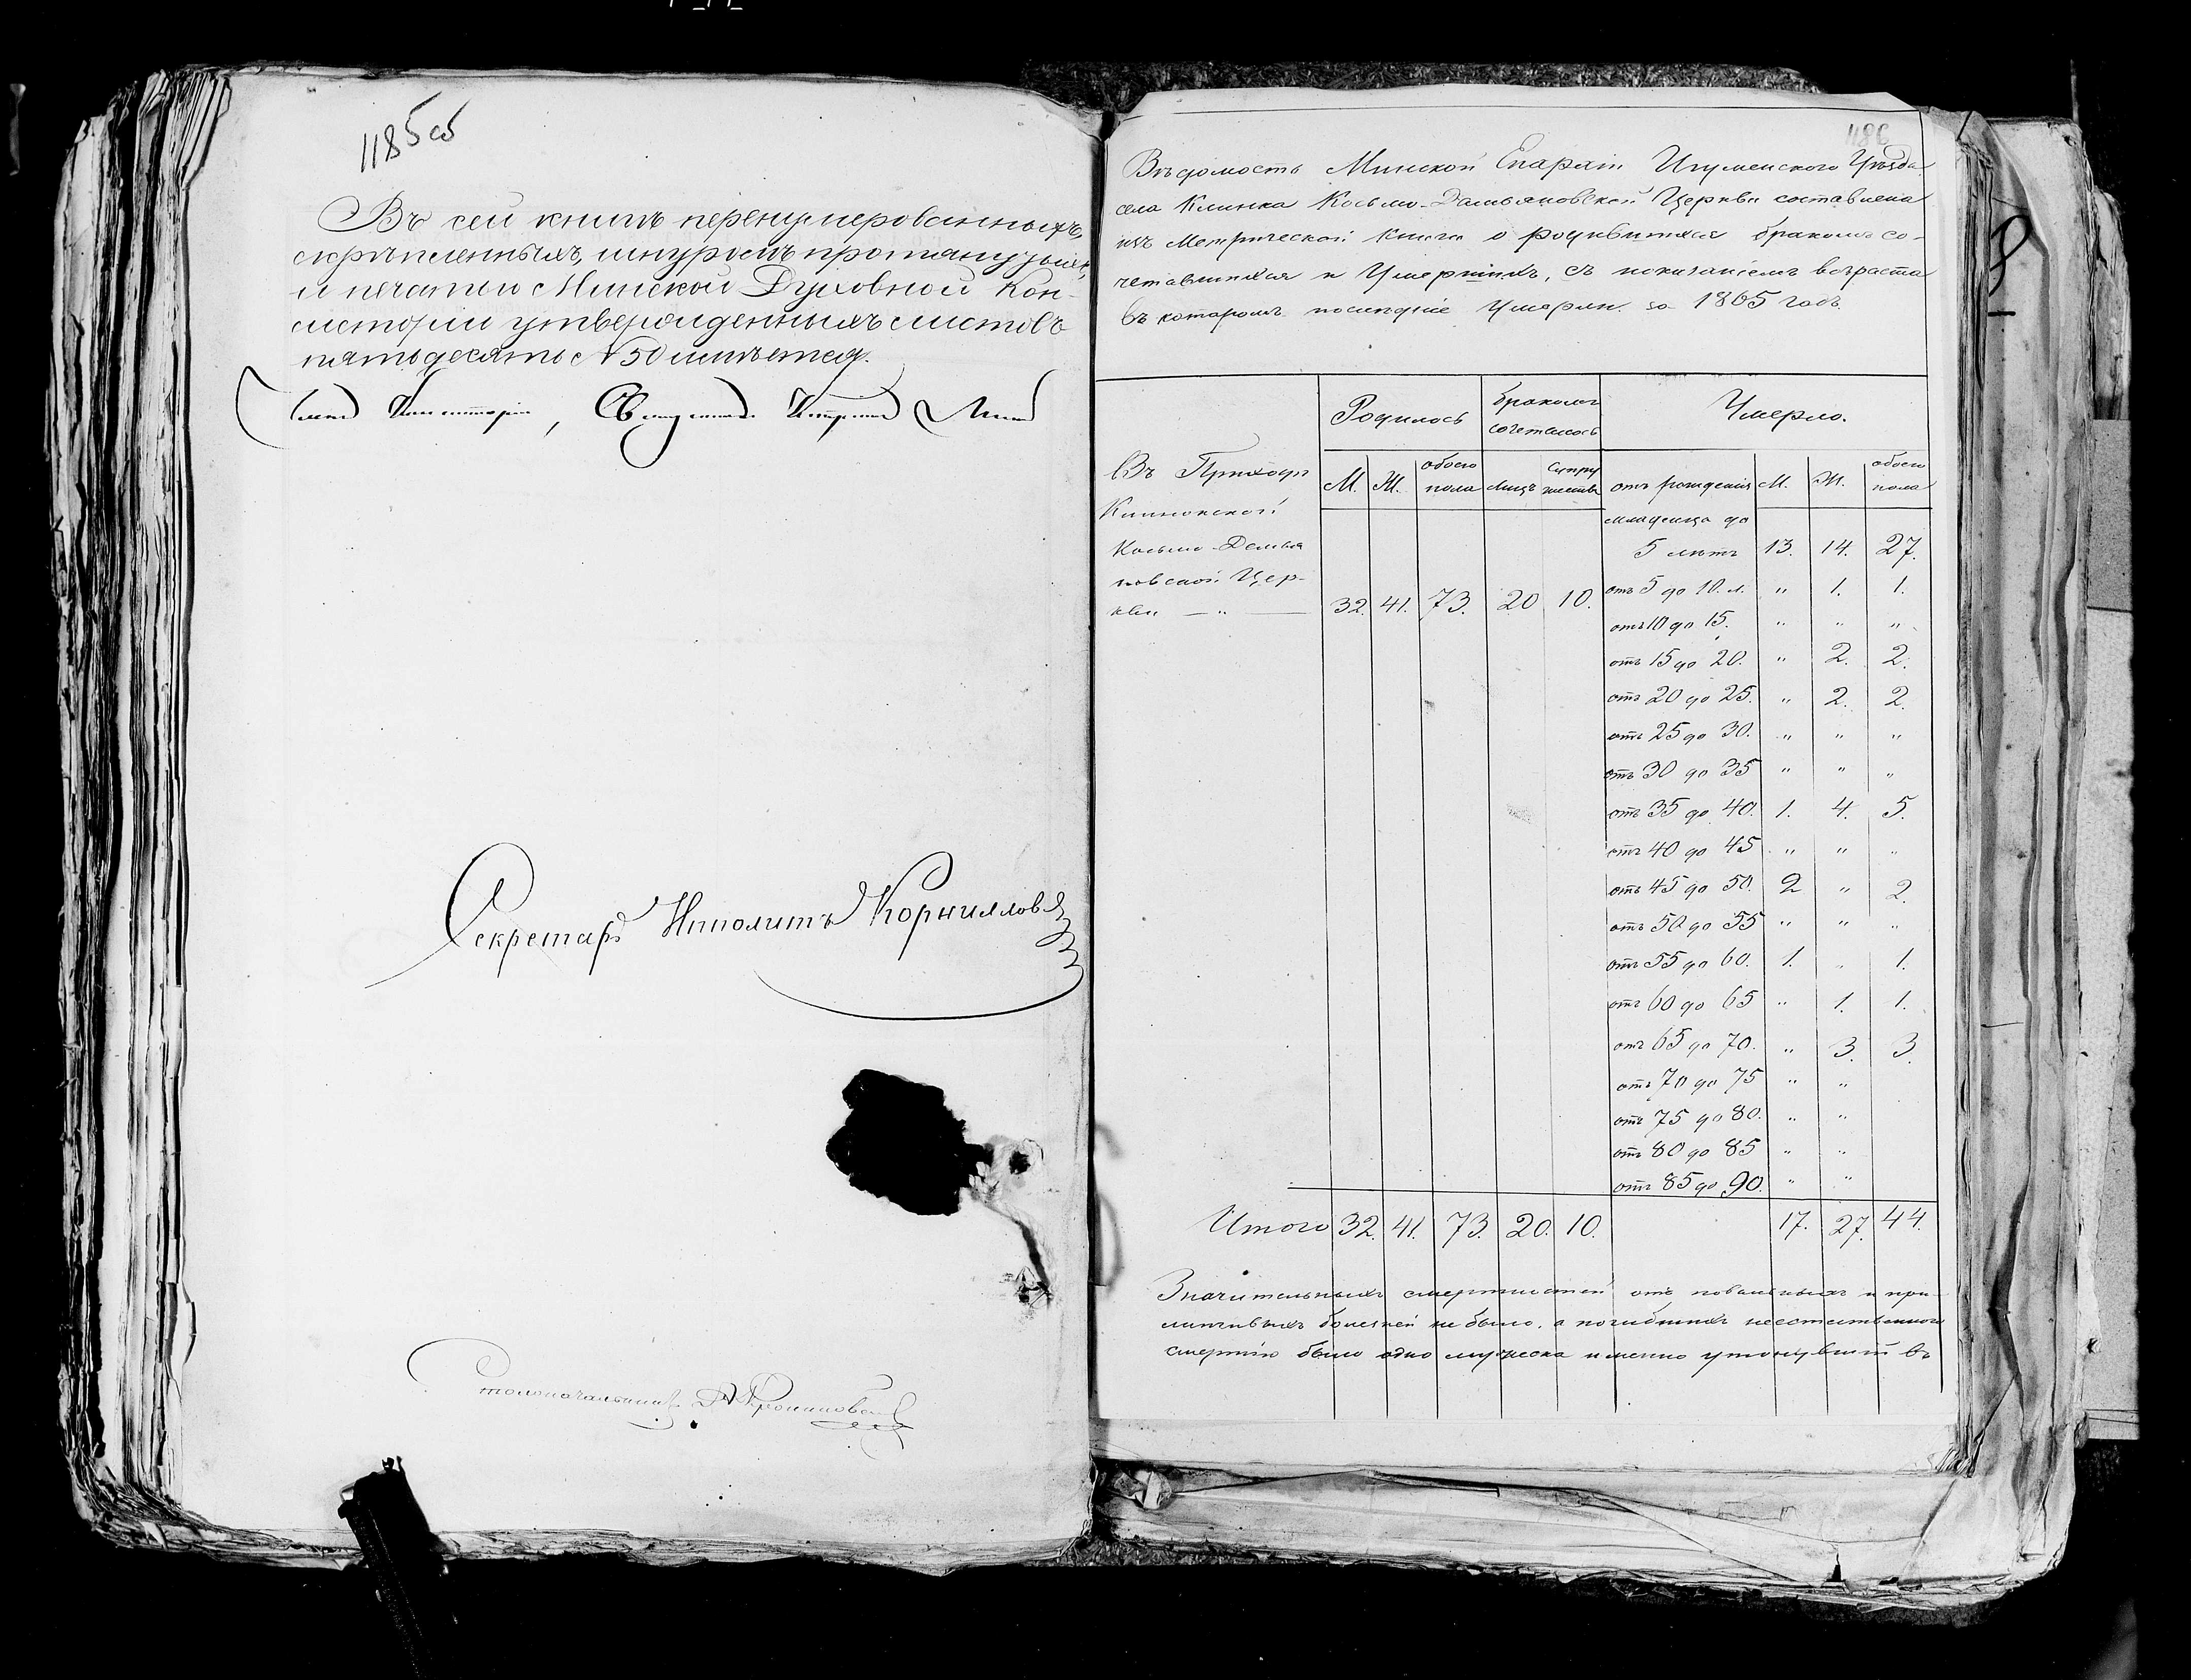 1185 об
Въ сей книгѣ перенумерованныхъ,
скрѣпленныхъ, шнуромъ протянутыхъ,
и печатью Минской Духовной Кон-
систоріи утвержденныхъ листовъ
пятьдесятъ N 50 имѣется.
Членъ Консисторіи, Священникъ
Секретарь Ипполитъ Корниловъ
Столоначальникъ
1186
Вѣдомость Минской Епархіи Игуменскаго Уѣзда
села Клинка Косьмо-Дамьяновской Церкви составлена
изъ Метрической Книги о родившихся бракомъ со-
четавшихся и Умершихъ, съ показаніемъ возраста
въ которомъ послѣдніе Умерли. за 1865 годъ.
Родилось бракомъ сочеталось Умерло.
Въ Приходѣ М. Ж. обоего пола лицъ супружества отъ рожденія М. Ж. обоего пола
Клинокской
младенца до
Косьмо-Демья 5 лѣтъ 13. 14. 27.
новской Цер- отъ 5 до 10. л. " 1. 1.
кви — " — 32. 41. 73. 20 10.
отъ 10 до 15. " " "
отъ 15 до 20. " 2. 2.
отъ 20 до 25. " 2. 2.
отъ 25 до 30. " " "
отъ 30 до 35 " " "
отъ 35 до 40. 1. 4. 5.
отъ 40 до 45 " " "
отъ 45 до 50. 2 " 2.
отъ 50 до 55 " " "
отъ 55 до 60. 1. " 1.
отъ 60 до 65 " 1. 1.
отъ 65 до 70. " 3. 3.
отъ 70 до 75 " "
отъ 75 до 80. " "
отъ 80 до 85 " "
отъ 85 до 90. " "
Итого 32. 41. 73. 20. 10. 17. 27. 44.
Значительныхъ смертностей отъ повальныхъ и при-
липчивыхъ болезней не было, а погибшихъ неестественною
смертію было одно мужеска именно утонувшій въ